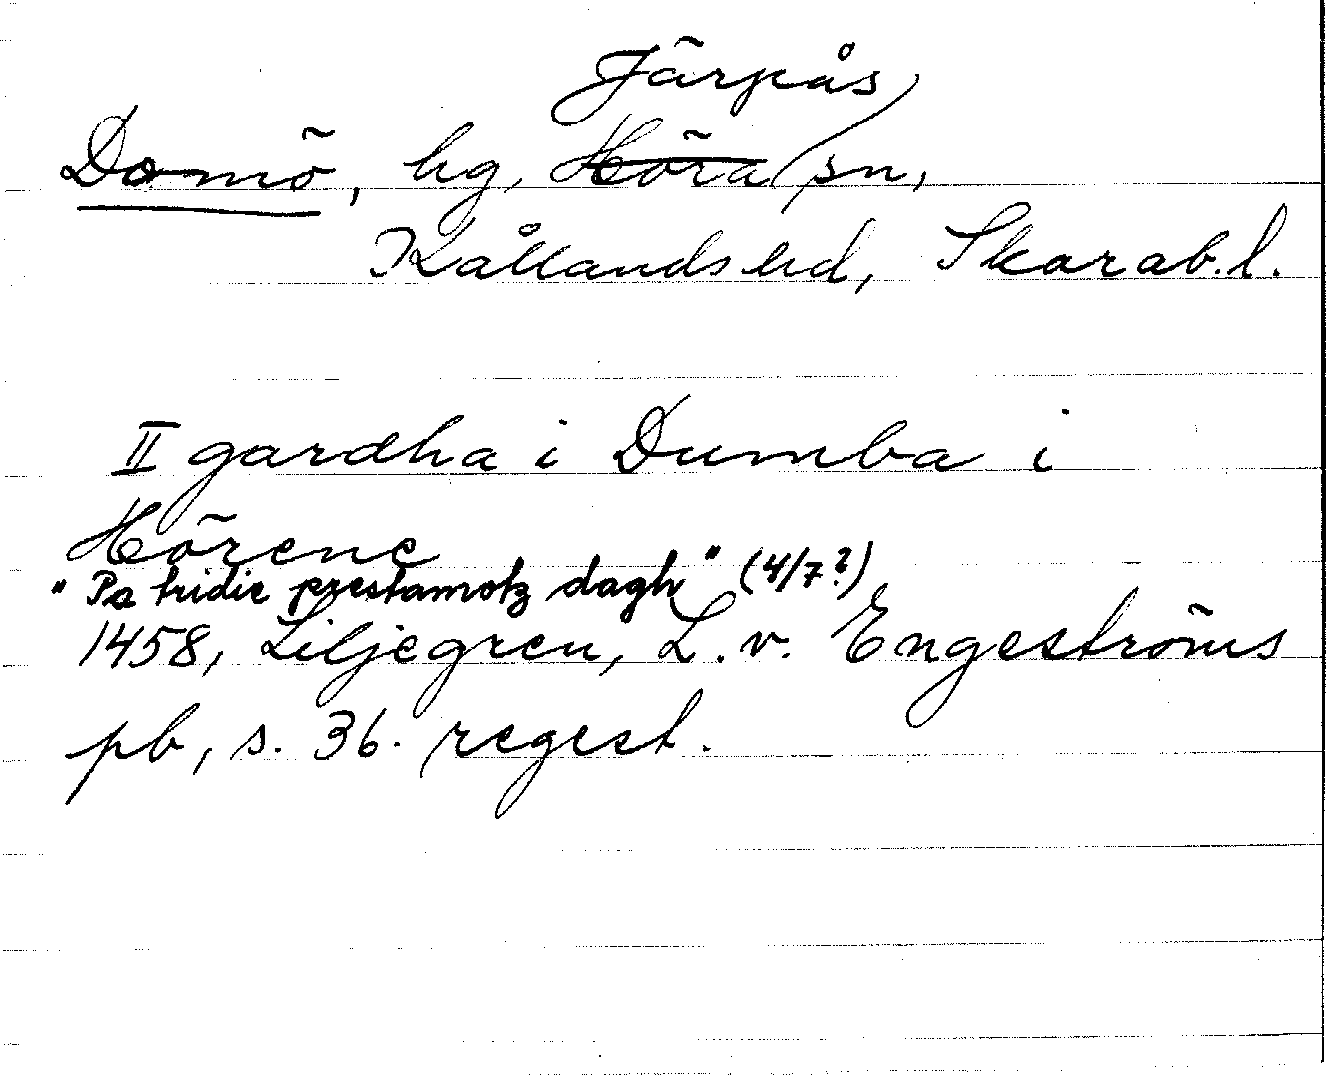 Järpås
Domö, hg, Höra sn,
Kållands hd, Skarab. l.
II gardha i Dumba i
Hörene
"Pa tridie prestamotz dagh" (4/7?)
1458, Liljegren, L. v. Engeströms
pb, s. 36. regest.